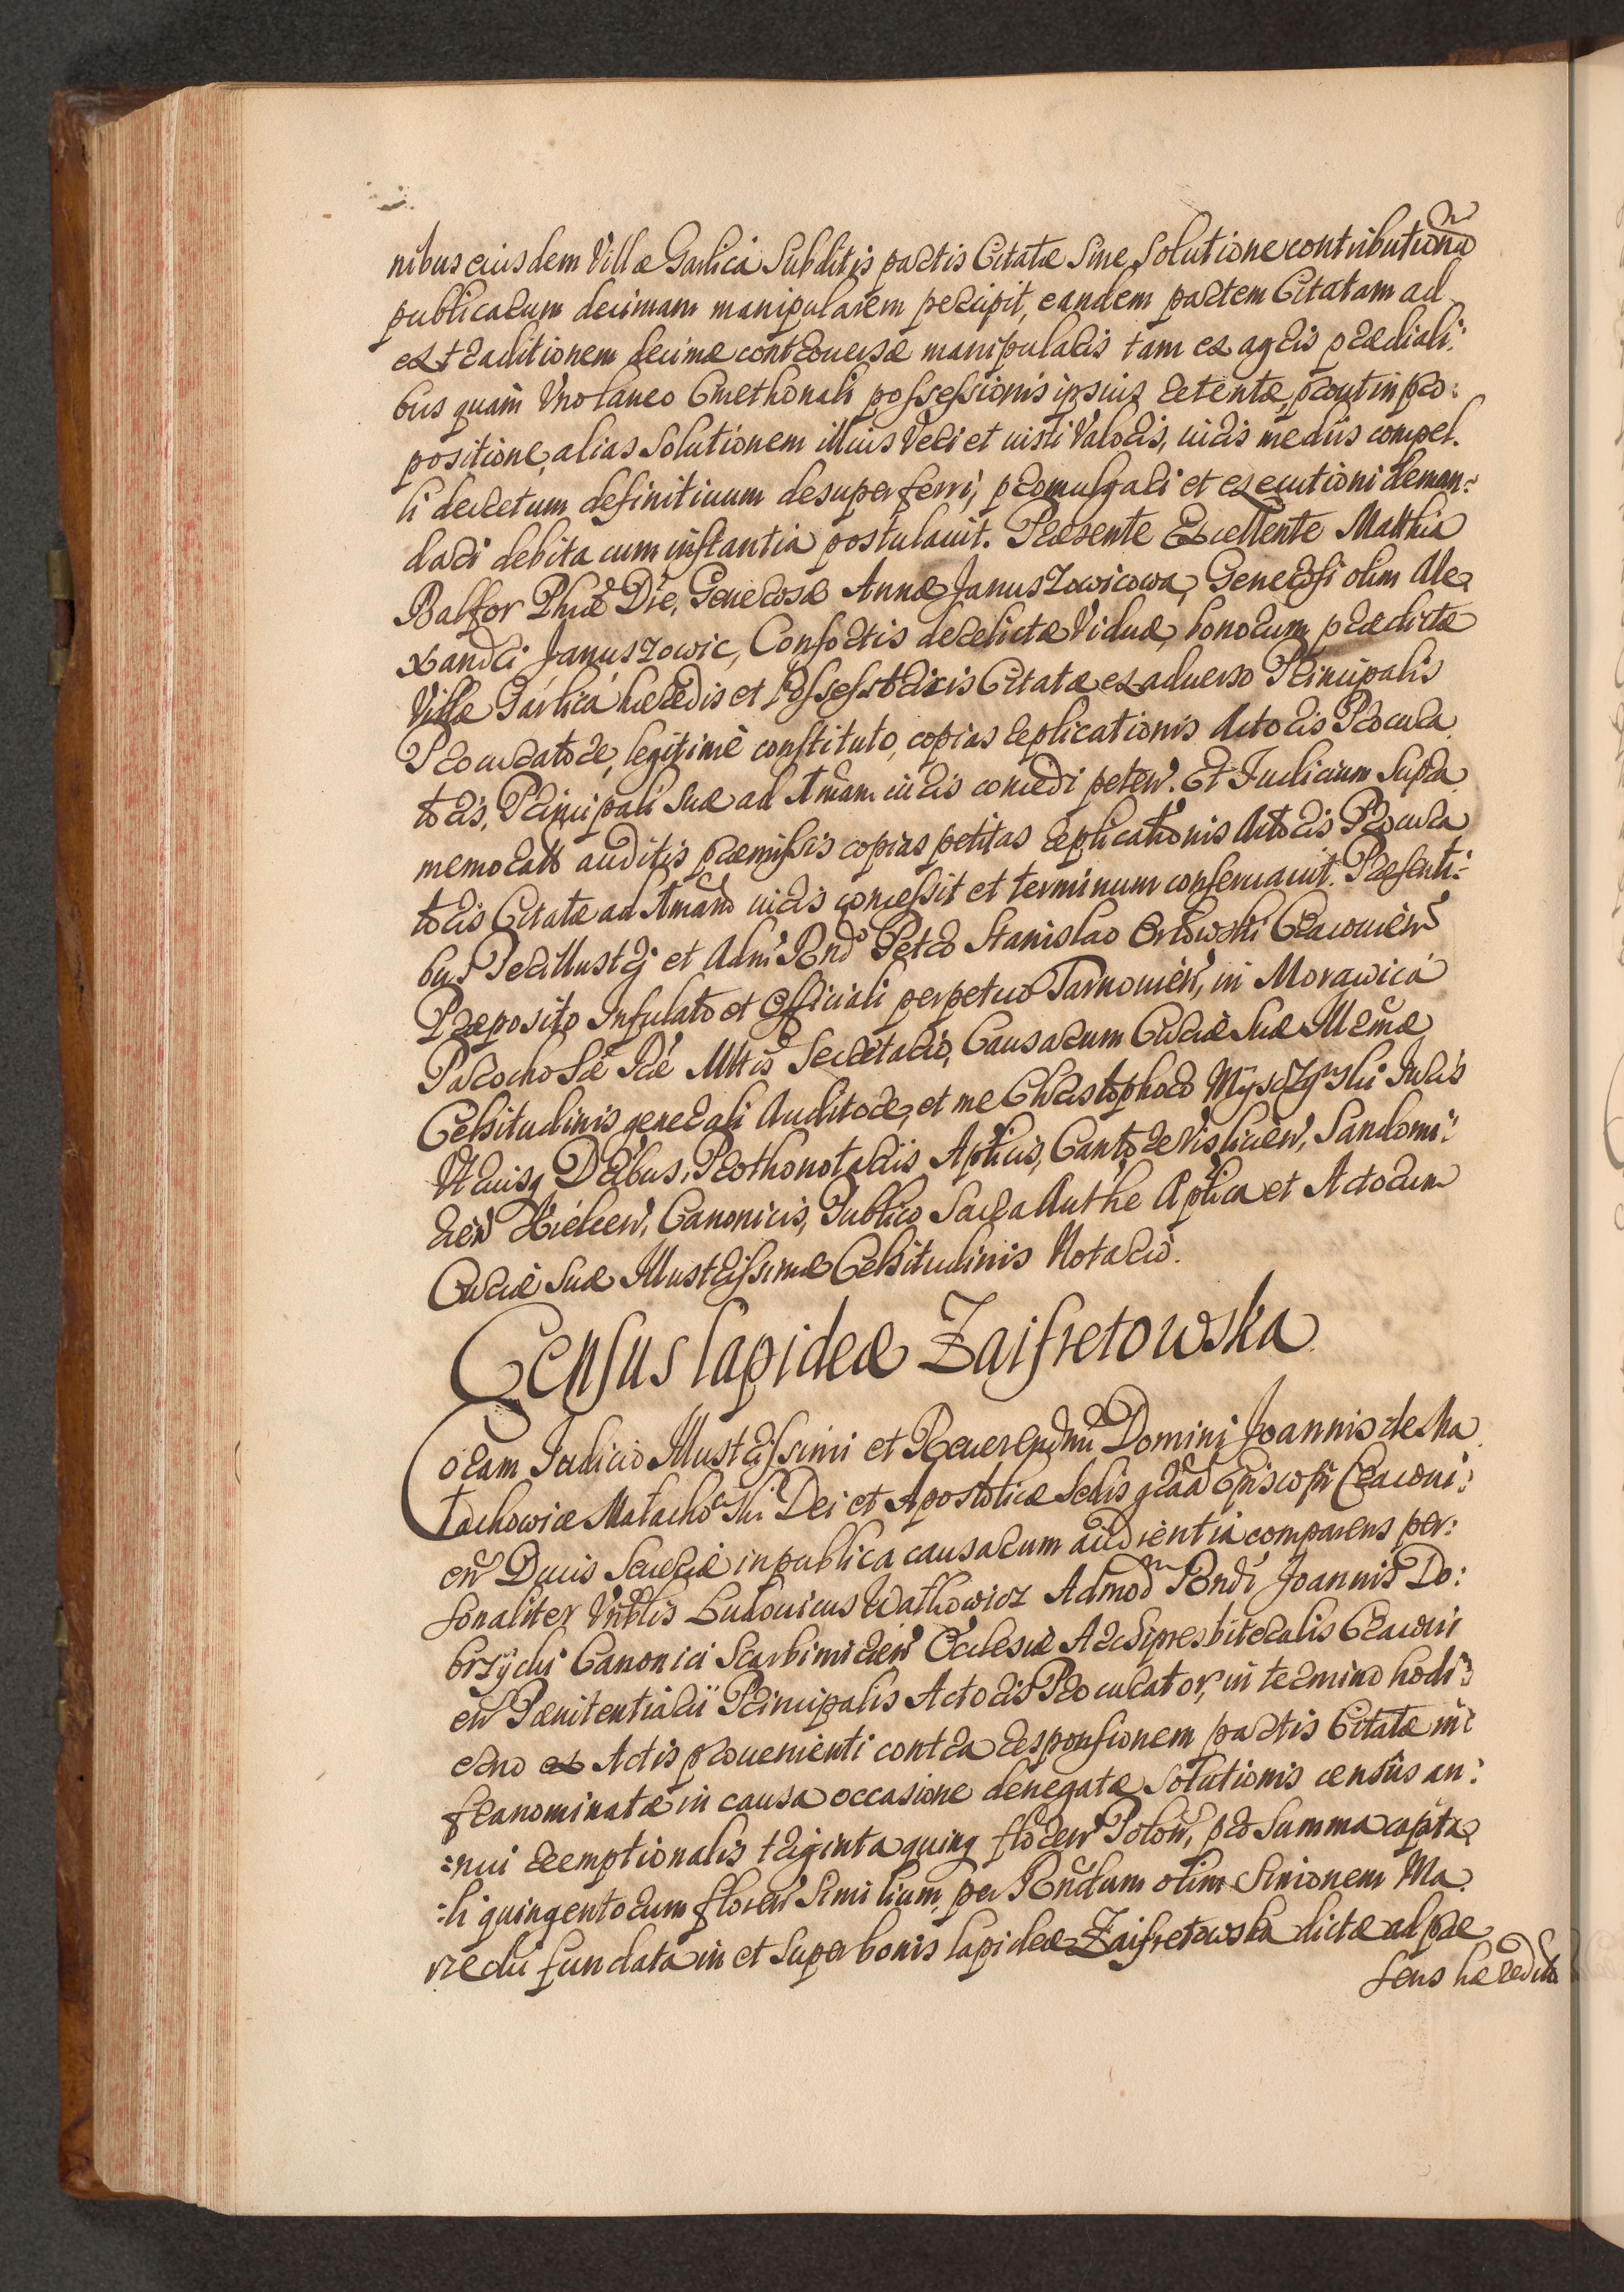 nibus eiusdem Villæ Garlica Subditis partis Citatæ Sine Solutione contributionũ
publicarum decimam manipularem percipit, eandem partem Citatam ad
extraditionem decimæ controuersæ manipularis tam ex agris prædiali:
bus quàm Vno laneo Cmethonali possessionis ipsius retentæ, prout in pro:
positione, alias Solutionem illius Veri et iusti Valoris, iuris mediis compel.
li decretum definitiuum desuper ferri, promulgari et executioni deman:
dari debita cum instantia postulauit. Præsente Excellente Matthia
Balfor Phiæ Dre, Generosæ Annæ Januszowicowa, Generosi olim Ale,
xandri Januszowic, Consortis derelictæ Viduæ, bonorum prædictæ
Villæ Garlica hæredis et Possessotricis Citatæ ex aduerso Principalis
Procuratore, legitimè constituto, copias replicationis Actoris Procura.
toris, Principali Suæ ad Armam iuris concedi peteñ. Et Iudicium Supra
memorató auditis præmissis copias petitas replicationis Actoris Procura
toris Citatæ ad Armam iuris concessit et terminum conseruauit. Præsenti:
bus Perillustrj et Adm̃ Rndo Petro Stanislao Orłowski Cracouień
Præposito Infulato et Officiali perpetuo Tarnouień, in Morawica
Parocho Sæ Ræ Mttis Secretario, Causarum Curiæ Suæ Illrmæ
Celsitudinis generali Auditore, et me Christophoro Myszynski Iuris
Vtriusq Dribus, Prothonotariis Aplicis, Cantore Visliceń, Sandomi:
rień Kielceń, Canonicis, Publico Sacra Authe Aplica et Actorum
Curiæ Suæ Illustrissimæ Celsitudinis Notario.
Census lapideæ Zaifretowska.
Coram Iudicio Illustrissimi et Reuerendmi Domini Joannis de Ma
łachowice Małachowski Dei et Apostolicæ Sedis grãa Episcopi Cracoui:
eñ Ducis Seueriæ in publica causarum audientia comparens per:
sonaliter Vnblis Ludouicus Watkowicz Admodm Rndi Joannis Do:
brzycki Canonici Scarbimirień Ecclesiæ Archipresbiteralis Cracoui
eñ Pænitentiarii Principalis Actoris Procurator, in termino hodi:
erno ex Actis prouenienti contra responsionem partis Citatæ in:
franominatæ in causa occasione denegatæ Solutionis censûs an:
:nui reemptionalis triginta quinq floreñ Poloñ, pro Summa capita,
:li quingentorum floreñ Similium, per Rndum olim Simonem Ma.
recki fundata in et Super bonis lapideæ Zaifretowska dictæ ad præ
sens hæredita